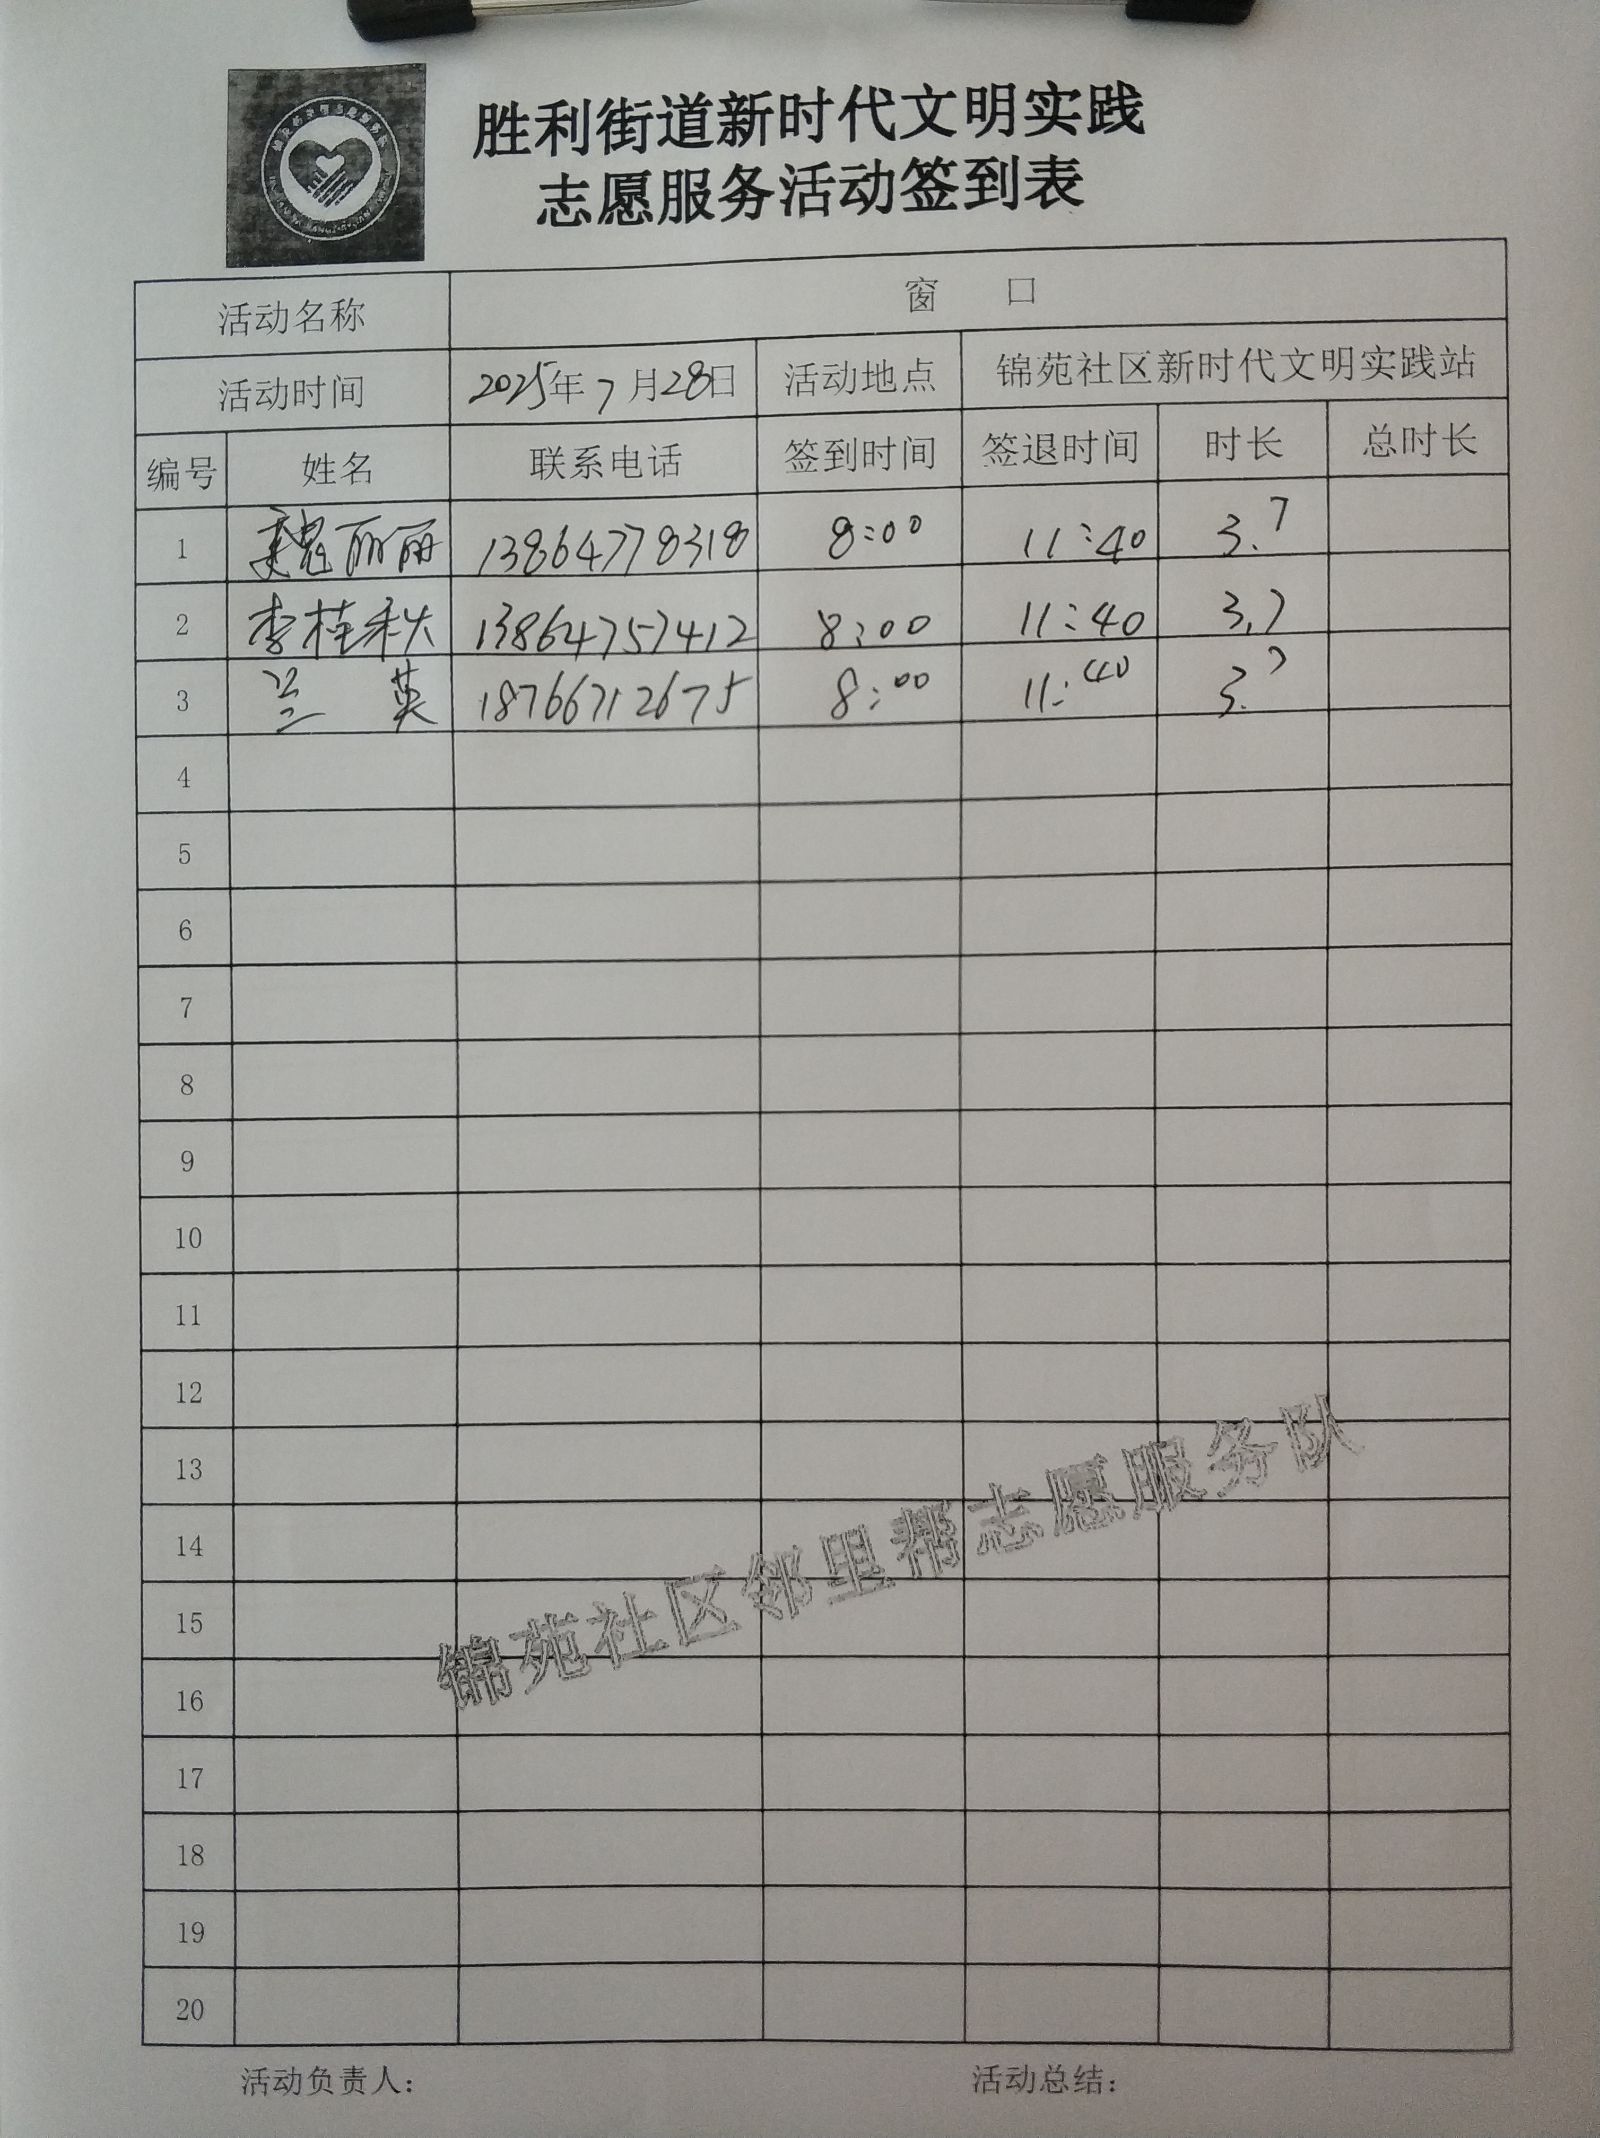 胜利街道新时代文明实践
志愿服务活动签到表
活动名称 窗 口
活动时间 2025年7月28日 活动地点 锦苑社区新时代文明实践站
编号 姓名 联系电话 签到时间 签退时间 时长 总时长
1 魏丽丽 13864778318 8:00 11:40 3.7
2 李桂秋 13864757412 8:00 11:40 3.7
3 兰 英 18766712675 8:00 11:40 3.7
4
5
6
7
8
9
10
11
12
13
14
15
16
17
18
19
20
锦苑社区邻里帮志愿服务队
活动负责人: 活动总结: